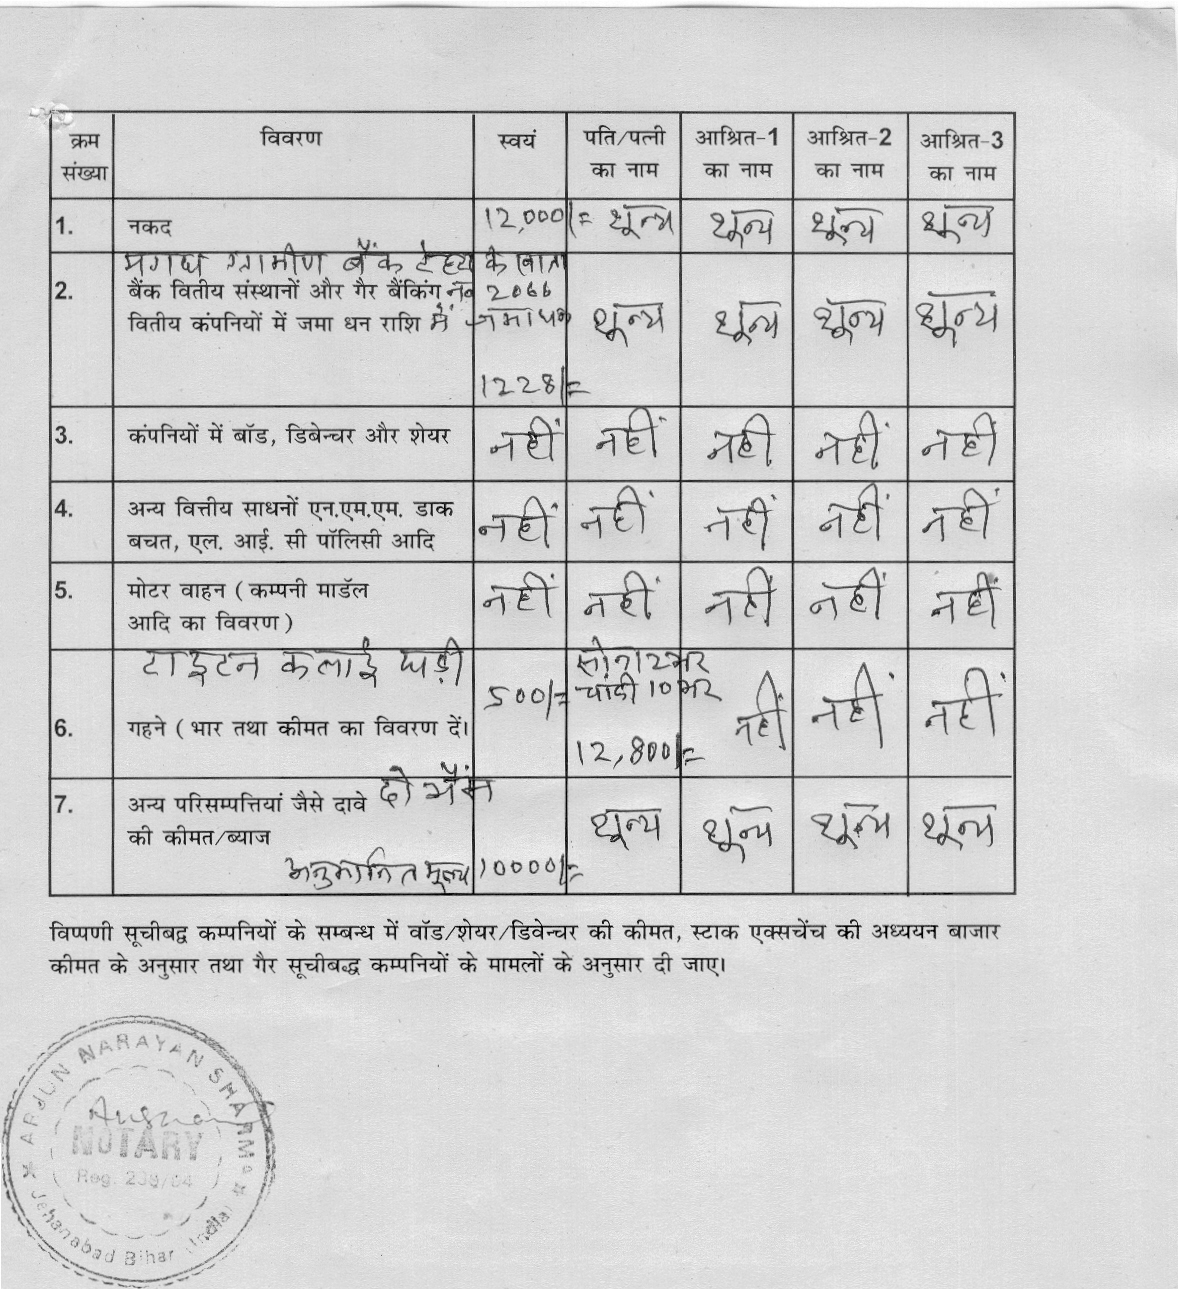 क्रम विवरण स्वयं पति/पत्नी आश्रित-1 आश्रित-2 आश्रित-3
संख्या का नाम का नाम का नाम का नाम
1. नकद 12,000/= शून्य शून्य शून्य शून्य
मगध ग्रामीण बैंक के खाता
2. बैंक वितीय संस्थानों और गैर बैंकिंग नं० 2066
वितीय कंपनियों में जमा धन राशि में जमा धन शून्य शून्य शून्य शून्य
1228/=
3. कंपनियों में बॉड, डिबेन्चर और शेयर नहीं नहीं नहीं नहीं नहीं
4. अन्य वित्तीय साधनों एन.एम.एम. डाक नहीं नहीं नहीं नहीं नहीं
बचत, एल. आई. सी पॉलिसी आदि
5. मोटर वाहन ( कम्पनी माडॅल नहीं नहीं नहीं नहीं नहीं
आदि का विवरण )
टाइटन कलाई घड़ी सोना 2 भर
500/= चांदी 10 भर
6. गहने ( भार तथा कीमत का विवरण दें। नहीं नहीं नहीं
12,800/=
7. अन्य परिसम्पत्तियां जैसे दावे दो भैंस शून्य शून्य शून्य शून्य
की कीमत/ब्याज
अनुमानित मूल्य 10000/=
विप्पणी सूचीबद्व कम्पनियों के सम्बन्ध में वॉड/शेयर/डिवेन्चर की कीमत, स्टाक एक्सचेंच की अध्ययन बाजार
कीमत के अनुसार तथा गैर सूचीबद्ध कम्पनियों के मामलों के अनुसार दी जाए।
ARJUN NARAYAN SHARMA
NOTARY
Reg.
Jehanabad Bihar (India)